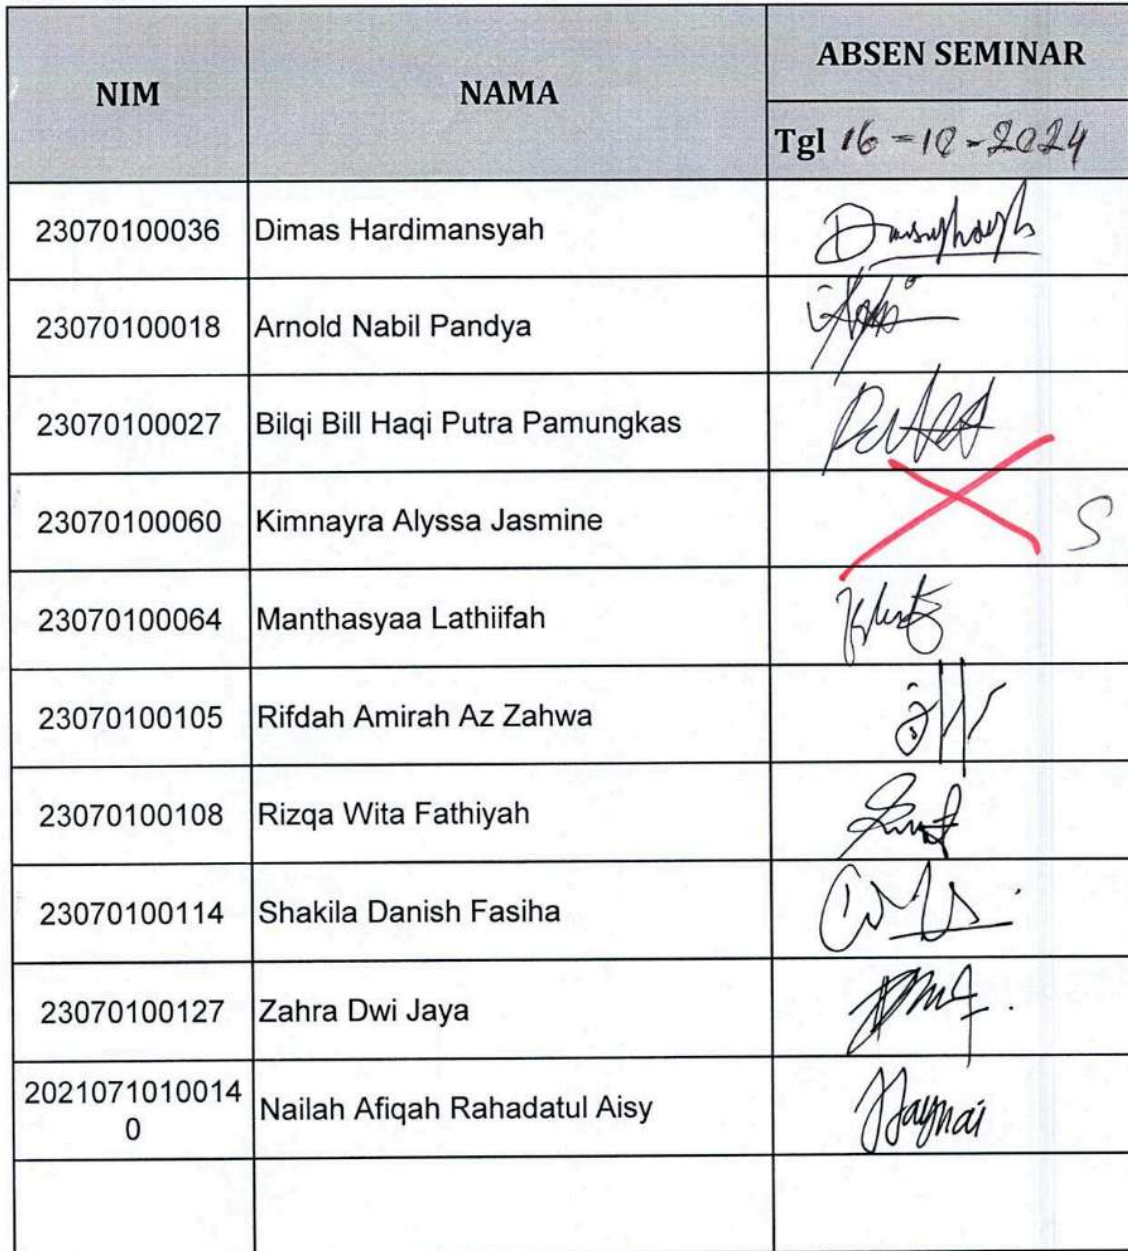 NIM NAMA ABSEN SEMINAR
Tgl 16-10-2024
23070100036 Dimas Hardimansyah
23070100018 Arnold Nabil Pandya
23070100027 Bilqi Bill Haqi Putra Pamungkas
23070100060 Kimnayra Alyssa Jasmine S
23070100064 Manthasyaa Lathiifah
23070100105 Rifdah Amirah Az Zahwa
23070100108 Rizqa Wita Fathiyah
23070100114 Shakila Danish Fasiha
23070100127 Zahra Dwi Jaya
2021071010014
0 Nailah Afiqah Rahadatul Aisy